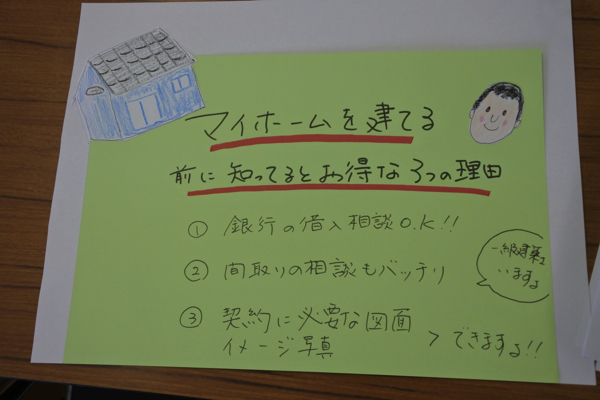 マイホームを建てる
前に知ってるとお得な3つの理由
① 銀行の借入相談O.K!!
② 間取りの相談もバッチリ
一級建築士
いますよ
③ 契約に必要な図面
イメージ写真
> できまする!!